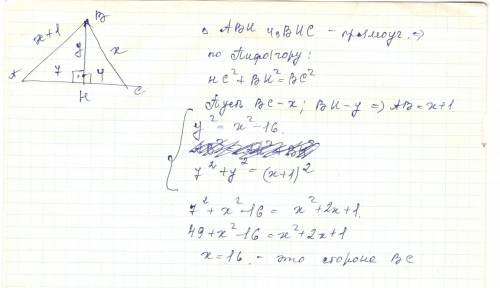 B
x+1
y
x
A
7
4
H
C
△ ABH и △BHC – прямоуг. ⇒
по Пифагору:
HC²+BH²=BC²
Пусть BC–x; BH–y ⇒ AB=x+1
y² = x²–16.
7²+y² = (x+1)²
7²+x²–16 = x²+2x+1.
49+x²–16=x²+2x+1
x=16. – это сторона BC